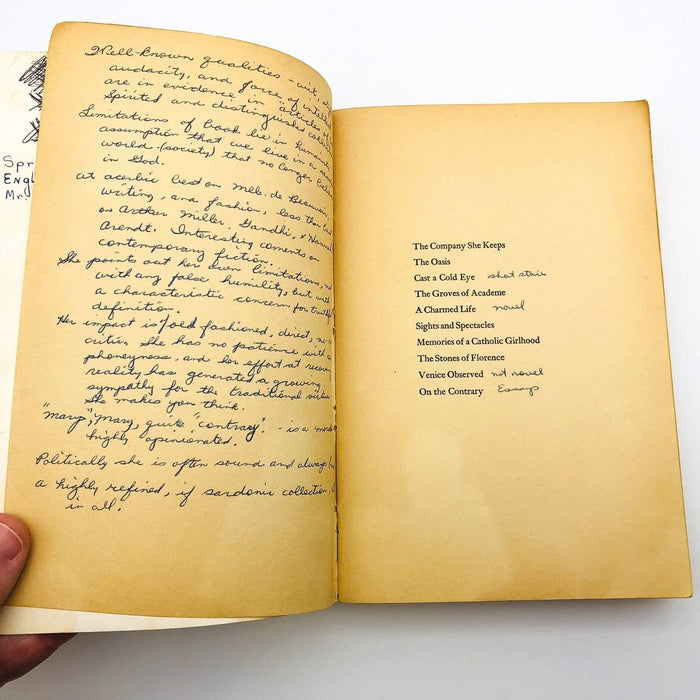 Spr
Engl
Mr.
Well-known qualities - wit,
audacity, and force of intell
are in evidence in "articles of
Spirited and distinguished
Limitations of book lie in humanis
assumption that we live in a
world. (society) that no longer
in God.
at acerbic best on Mlle. de Beauvoir,
writing, and fashion, less than
on Arthur Miller, Gandhi, & Hanna
Arendt. Interesting coments on
contemporary fiction.
She points out her own limitations, not
with any false humility, but with
a characteristic concern for truthf
definition.
Her impact is "old fashioned, direct,
critic. She has no patience with
phoneyness, and her effort at recover
reality has generated a growing
sympathy for the traditional virtues
She makes you think.
"mary", "mary, quite "contrary". - is a
highly opinionated.
Politically she is often sound and always
a highly refined, if sardonic collection,
in all.
The Company She Keeps
The Oasis
Cast a Cold Eye short stories
The Groves of Academe
A Charmed Life novel
Sights and Spectacles
Memories of a Catholic Girlhood
The Stones of Florence
Venice Observed not novel
On the Contrary Essays